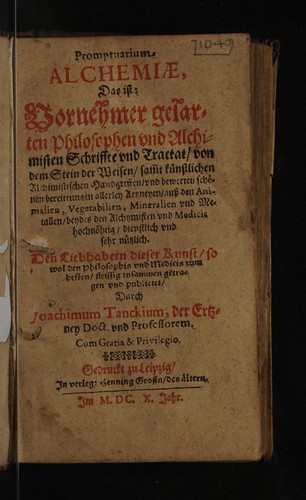 71049
Promptuarium
ALCHEMIÆ,
Das ist:
Vornehmer gelar-
ten Philosophen vnd Alchi-
misten Schriffte vnd Tractat/ von
dem Stein der Weisen/ sampt künstlichen
Alchimistischen Handgriffen/ vnd bewerten schö-
nen bereitungen allerley Artzneyen/ auß den Ani-
malien, Vegetabilien, Mineralien vnd Me-
tallen/ beydes den Alchymisten vnd Medicis
hochnöhtig/ dienstlich vnd
sehr nützlich.
Den Liebhabern dieser Kunst/ so
wol den philosophis vnd Medicis zum
besten/ fleissig zusammen getra-
gen vnd publicirt/
Durch
Joachimum Tanckium, der Ertz-
ney Doct. vnd Professorem.
Cum Gratia & Privilegio.
Gedruckt zu Leipzig/
In verleg: Henning Großn/ des ältern.
Im M. DC. X. Jahr.